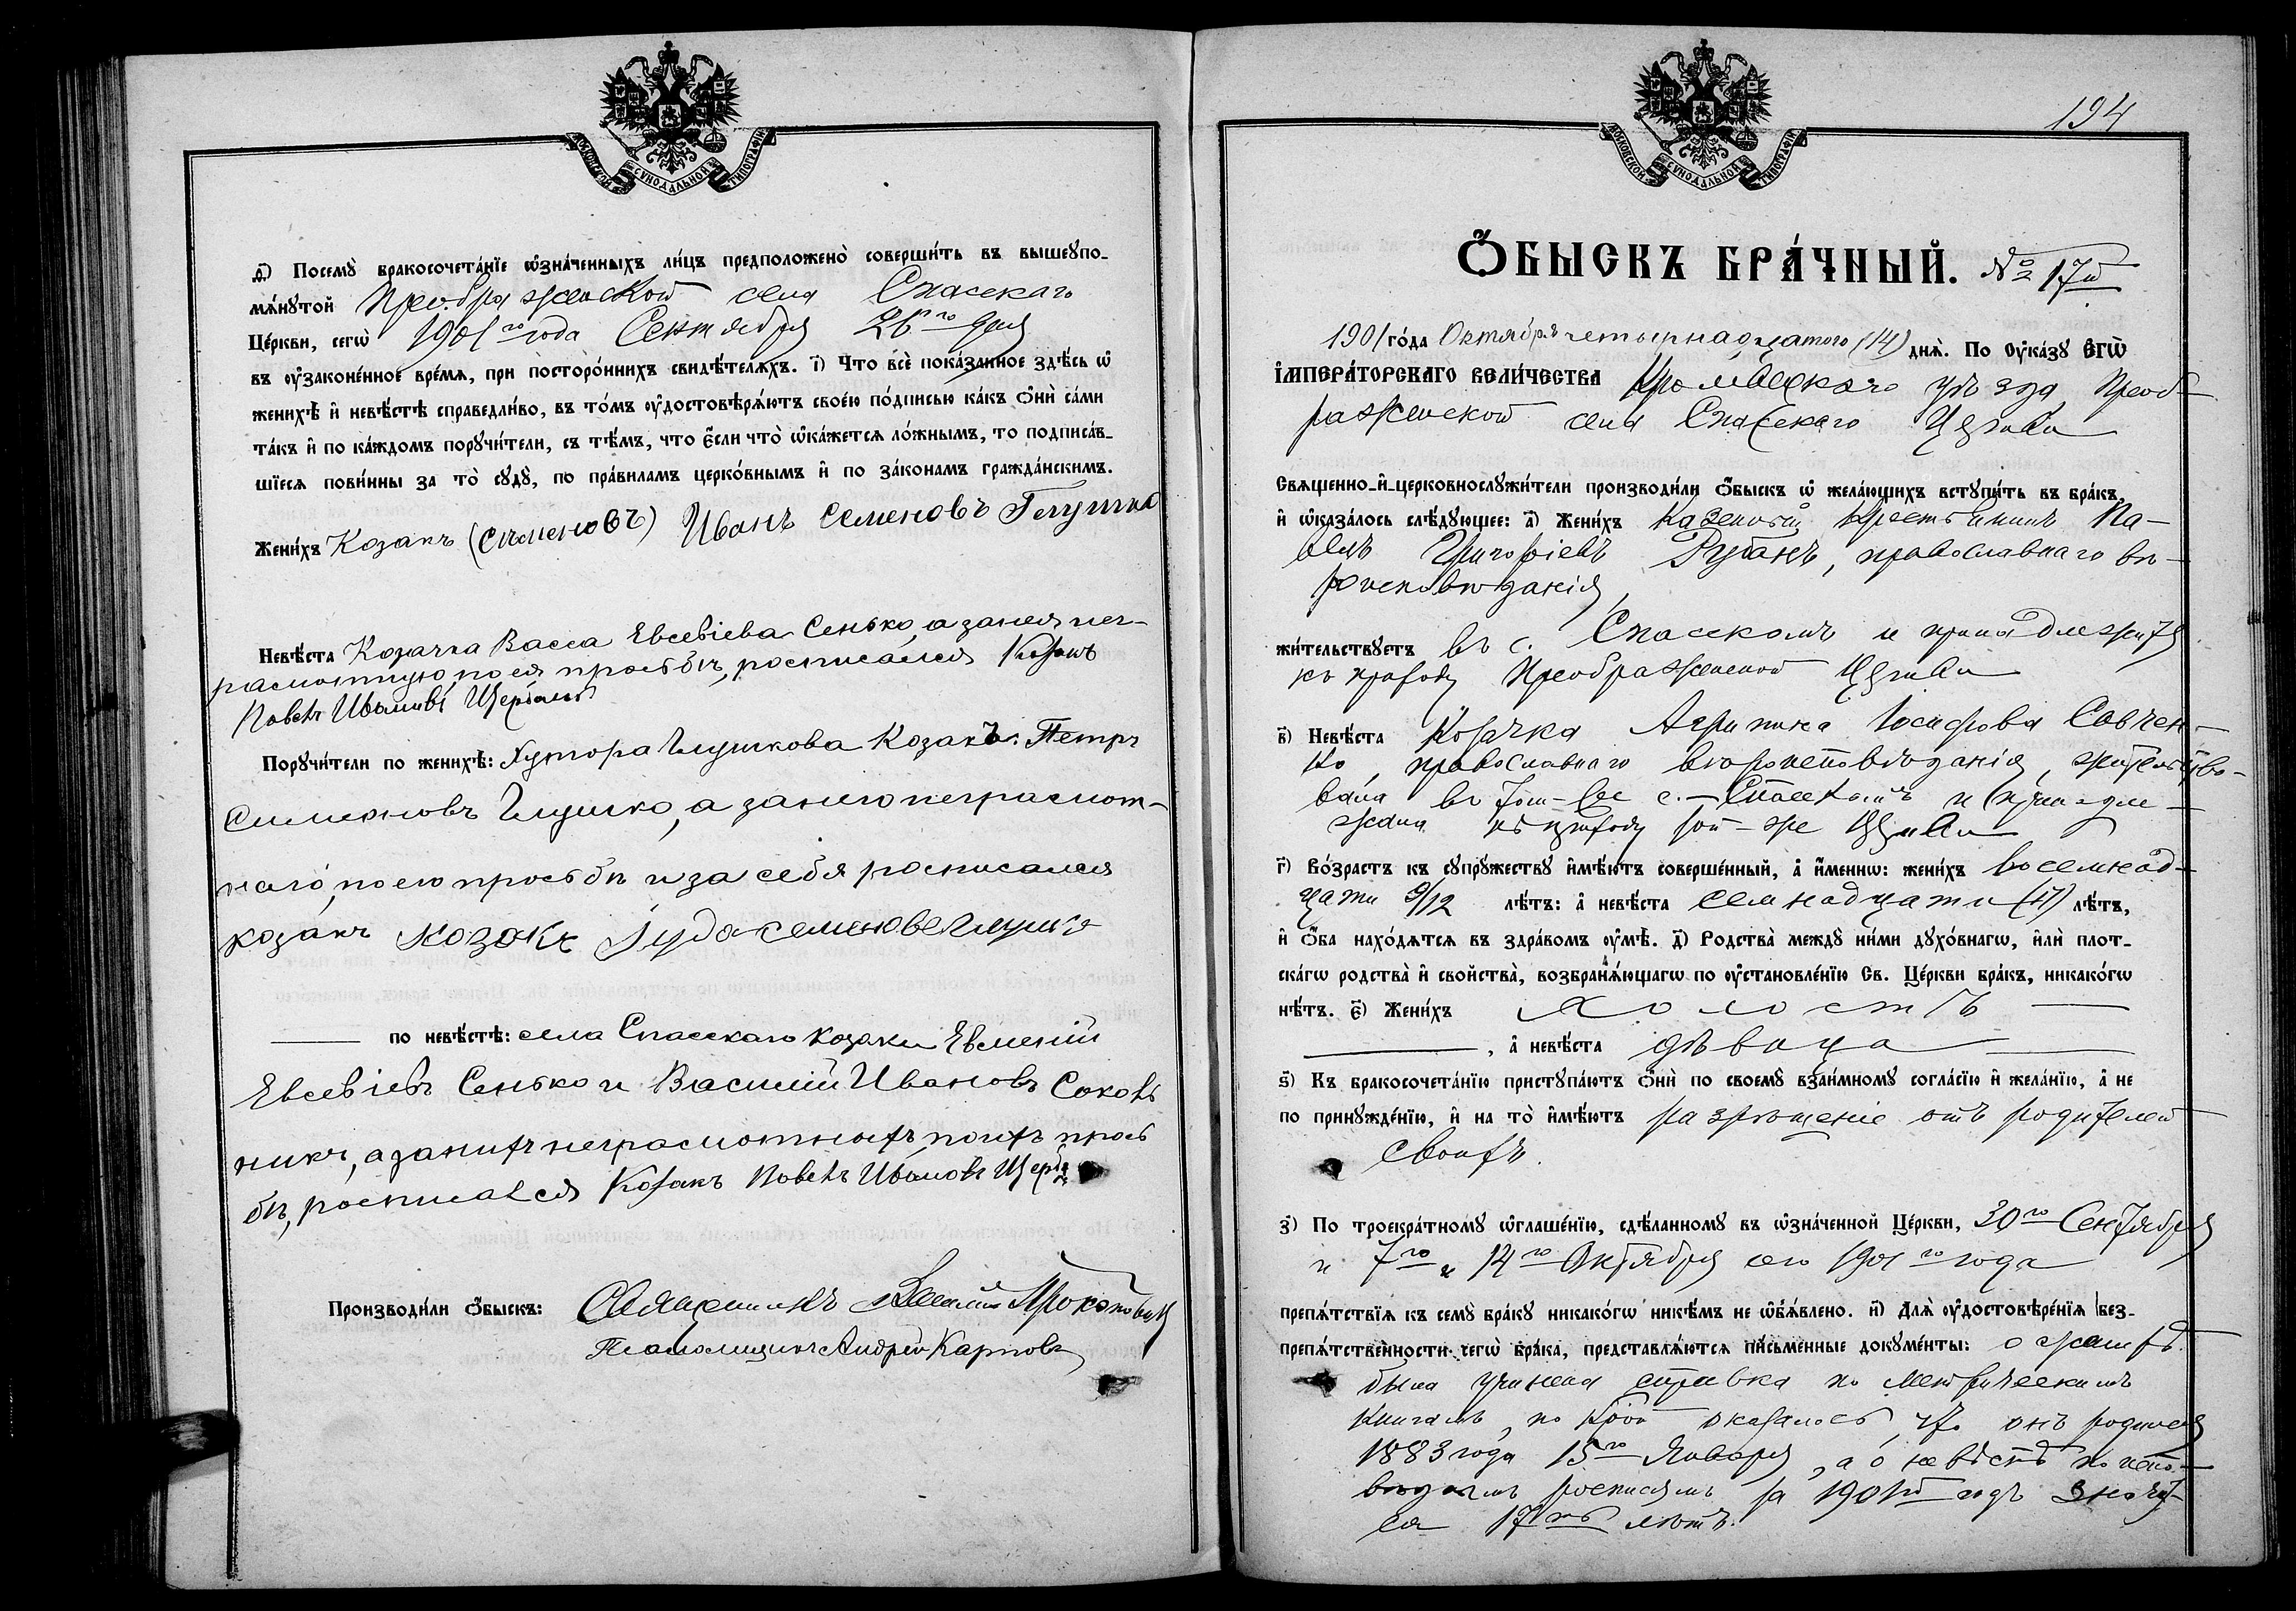 МОСКОВСКОЙ СѴНОДАЛЬНОЙ ТИПОГРАФІИ
ѳ҃) Посемꙋ̀ бракосочета́нїе ѡ҆зна́ченныхъ ли́цъ предположено̀ соверши́ть въ вышеꙋпо-
мѧ́нꙋтой Преображенской села Спасскаго
Це́ркви, сегѡ̀ 1901го года Сентября 26го дня
въ ᲂу҆законе́нное вре́мѧ, при посторо́ннихъ свидѣ́телѧхъ. і҃) Что̀ всѐ пока́занное здѣ́сь ѡ҆
женихѣ̀ и҆ невѣ́стѣ справедли́во, въ то́мъ ᲂу҆достовѣрѧ́ютъ свое́ю по́дписью ка́къ ѻ҆нѝ са́ми
та́къ и҆ по ка́ждомъ порꙋчи́тели, съ тѣ́мъ, что є҆́сли что̀ ѡ҆ка́жется ло́жнымъ, то подписа́в-
шїеся пови́нны за то̀ сꙋдꙋ̀, по пра́виламъ церко́внымъ и҆ по зако́намъ гражда́нскимъ.
Жени́хъ Козакъ (Семеновъ) Иванъ Семеновъ Глушко
Невѣ́ста Козачка Васса Евсевіева Сенько, а за нея негра-
мотную, по ея просьбѣ, росписался Козакъ
Павелъ Ивановъ Щерба
Порꙋчи́тели по женихѣ̀: Хутора Глушкова Козакъ: Петръ
Симеоновъ Глушко, а за него неграмот-
наго, по его просьбѣ и за себя росписался
козакъ козакъ Іуда семеновъ Глушко
по невѣ́стѣ: села Спасскаго козаки Евменій
Евсевіевъ Сенько и Василій Ивановъ Соколь
никъ, а за нихъ неграмотныхъ по ихъ прось
бѣ, росписался Козакъ Павелъ Ивановъ Щерба
Производи́ли ѻ҆́быскъ: Священникъ Василій Прокоповичъ
Псаломщикъ Андрей Карповъ
194
МОСКОВСКОЙ СѴНОДАЛЬНОЙ ТИПОГРАФІИ
Ѻ҆БЫСКЪ БРА́ЧНЫЙ. № 17й
1901 го́да Октября четырнадцатого (14) днѧ̀. По ᲂу҆ка́зꙋ Є҆ГѠ̀
І҆МПЕРА́ТОРСКАГО ВЕЛИ́ЧЕСТВА Кролевецкаго уѣзда, Преоб-
раженской села Спасскаго Церкви
Свѧще́нно-и҆-церковнослꙋжи́тели производи́ли ѻ҆́быскъ ѡ҆ жела́ющихъ встꙋпи́ть въ бра́къ,
и҆ ѡ҆каза́лось слѣ́дꙋющее: а҃) Жени́хъ казенный крестьянинъ Па-
велъ Григоріевъ Рубанъ, православнаго вѣ-
роисповѣданія,
жи́тельствꙋетъ въ с. Спасскомъ и принадлежитъ
къ приходу Преображенской Церкви
в҃) Невѣ́ста Козачка Агрипина Іосифова Савчен-
ко, православнаго вѣроисповѣданія, жительство-
вала въ томъ-же с. Спасскомъ и принадле-
жала къ приходу той-же Церкви
г҃) Во́зрастъ къ сꙋпрꙋ́жествꙋ и҆мѣ́ютъ соверше́нный, а҆ и҆́меннѡ: жени́хъ восемнад-
цати 9/12 лѣ́тъ: а҆ невѣ́ста семнадцати (17) лѣ́тъ,
и҆ ѻ҆́ба нахо́дѧтсѧ въ здра́вомъ ᲂу҆мѣ̀. д҃) Родства̀ междꙋ̀ ни́ми дꙋхо́внагѡ, и҆лѝ плот-
ска́гѡ родства̀ и҆ свойства̀, возбранѧ́ющагѡ по ᲂу҆становле́нїю Св. Це́ркви бра́къ, никако́гѡ
нѣ́тъ. є҃) Жени́хъ холостъ
, а҆ невѣ́ста дѣвица
ѕ҃) Къ бракосочета́нїю пристꙋпа́ютъ ѻ҆нѝ по своемꙋ̀ взаи́мномꙋ согла́сїю и҆ жела́нїю, а҆ не
по принꙋжде́нїю, и҆ на то̀ и҆мѣ́ютъ разрѣшеніе отъ родителей
своихъ.
з҃) По троекра́тномꙋ ѡ҆глаше́нїю, сдѣ́ланномꙋ въ ѡ҆зна́ченной Це́ркви, 30го Сентября
и 7го и 14го Октября сего 1901го года
препѧ́тствїѧ къ семꙋ̀ бра́кꙋ никако́гѡ никѣ́мъ не ѡ҆б̾ѧ́влено. и҃) Длѧ̀ ᲂу҆достовѣре́нїѧ без-
препѧ́тственности сегѡ̀ бра́ка, представлѧ́ютсѧ пи́сьменные докꙋме́нты: о женихѣ
была учинена справка по метрическимъ
книгамъ, по коей оказалось, что онъ родился
1883 года 15го Января, а о невѣстѣ по испо-
вѣднымъ росписямъ за 1901й годъ значит-
ся 17ть лѣтъ.